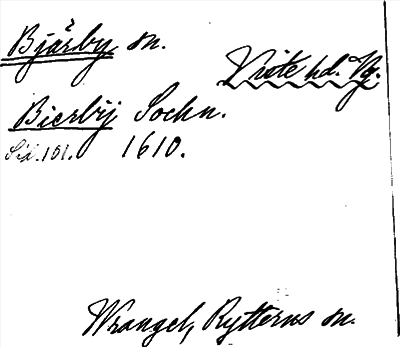 Bjärby, sn.
Viste hd. Vg.
Bierbÿ Sochn.
Sid. 101. 1610.
Wrangel, Rytterns sn.